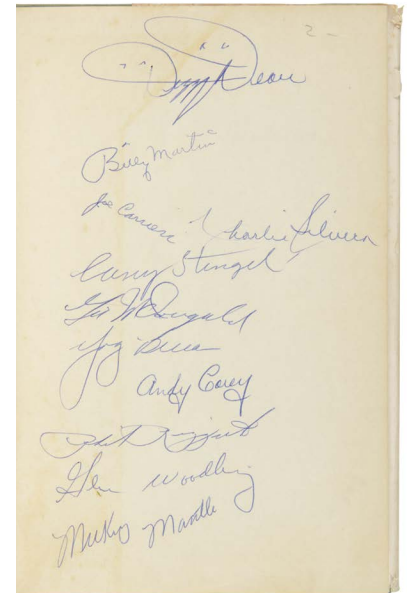 2-
"Dizzy" Dean
"Billy Martin"
Joe Carrieri
Charlie Silvera
Casey Stengel
Gil McDougald
Yogi Berra
Andy Carey
Phil Rizzuto
Gene Woodling
Mickey Mantle